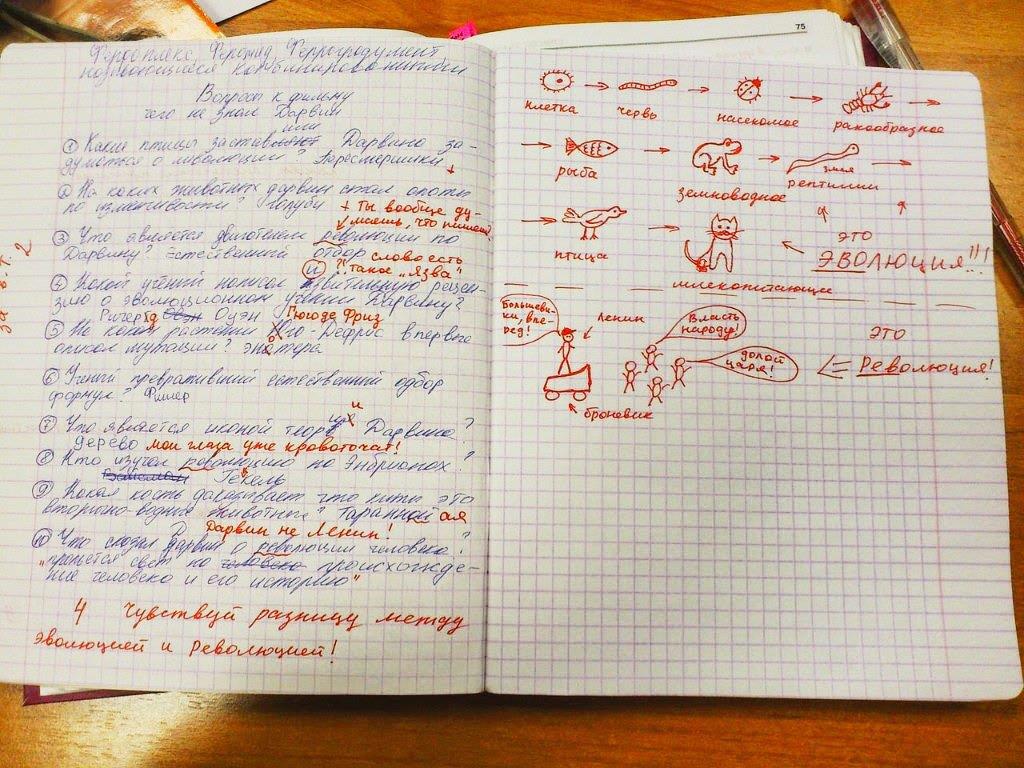 75
Вопросы к фильму
чего не знал Дарвин
или
① Какие птицы заставляют Дарвина за-
думаться о революции? +
② На каких животных дарвин стал опыты
по изменчивости? голуби
+ ты вообще ду-
маешь, что пишешь?
③ Что является двигателем революции по
Дарвину? Естественный отбор
слово есть
такое "язва"
④ Какой учёный написал язвительную рецен-
и
зию о эволюционном учении Дарвину?
Ричард Оуэн
Гюго де Фриз
⑤ На каком растении Гюго-Дефриз впервые
описал мутации? энотера
⑥ Учёный превративший естественный отбор
формул? Фишер
⑦ Что является иконой теории Дарвина?
и
дерево мои глаза уже кровоточат!
⑧ Кто изучал революцию по Энбрионах?
Геккель
⑨ Какая кость доказывает что киты это
вторично-водные животные? Таранной ая
Дарвин не Ленин!
⑩ Что сказал дарвин о революции человека?
"прольётся свет на человека происхожде-
ние человека и его историю"
4 Чувствуй разницу между
эволюцией и Революцией!
2
клетка червь насекомое ракообразное
рыба земноводное змея рептилии
птица
это
ЭВОЛЮЦИЯ!!!
млекопитающее
Большеви-
ки, впе-
рёд!
Ленин
Власть
народу!
долой
царя!
это
Революция!
броневик